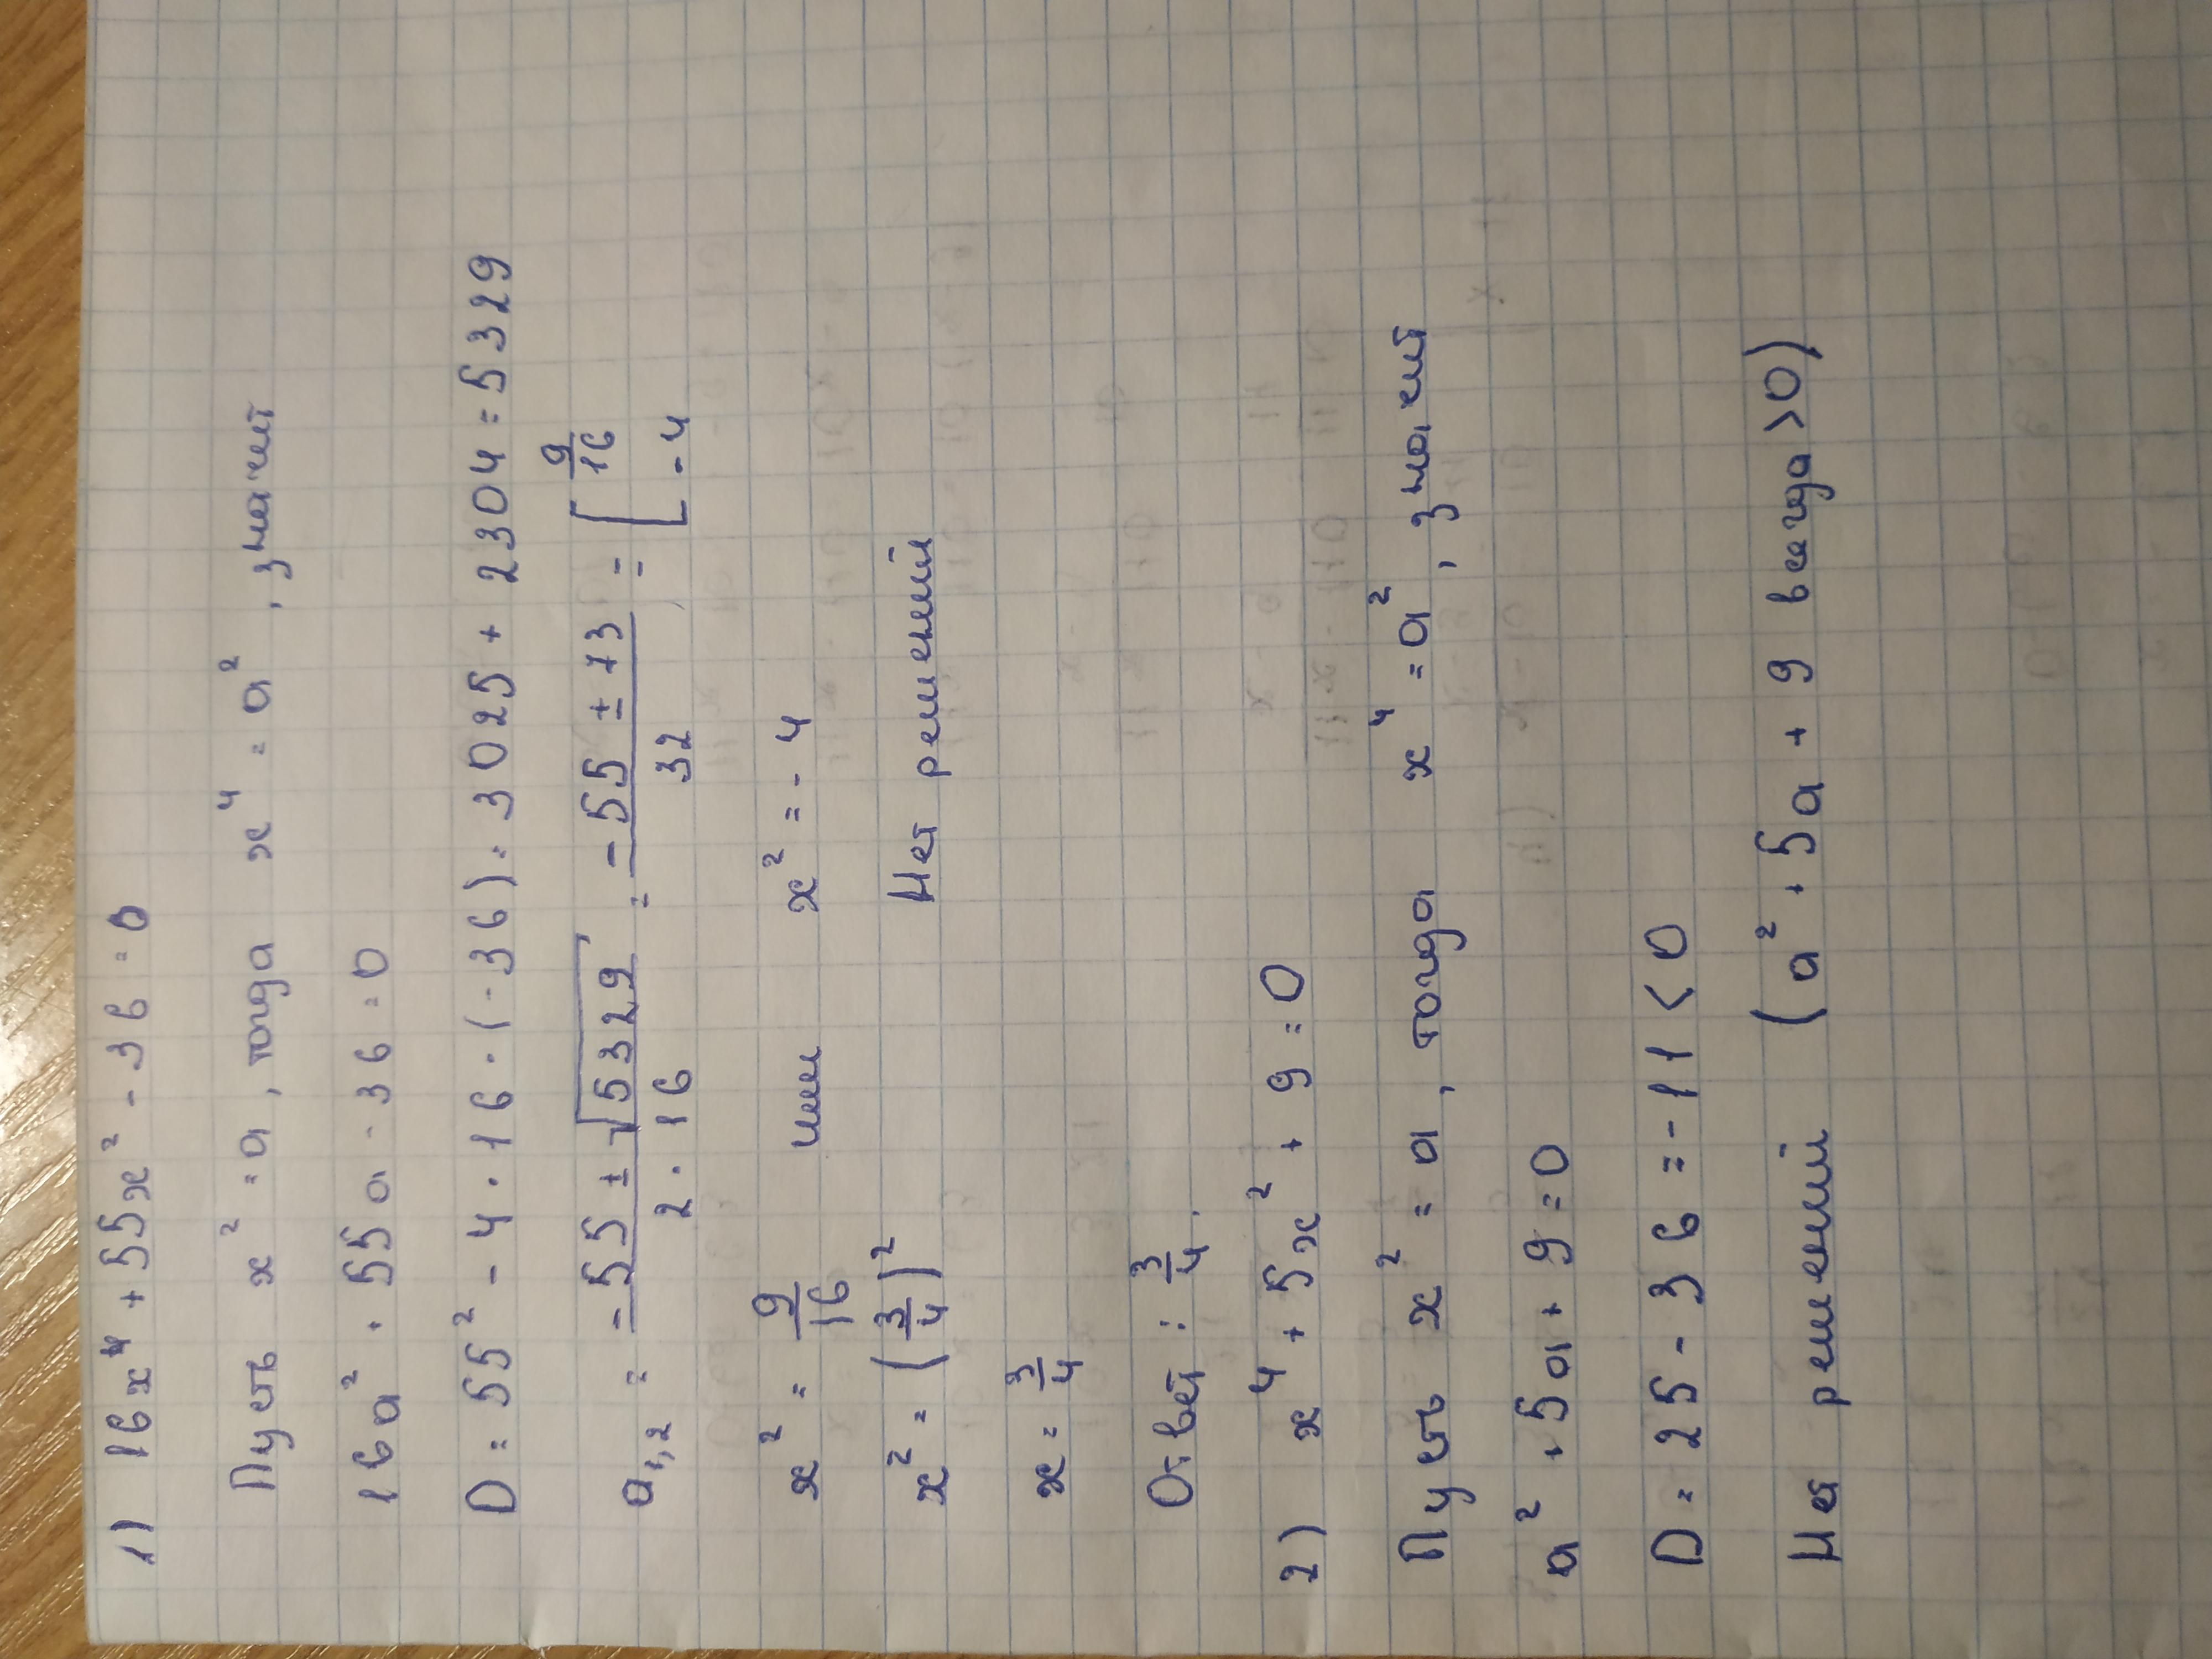 1) 16x⁴ + 55x² - 36 = 0
Пусть x² = a, тогда x⁴ = a², значит
16a² + 55a - 36 = 0
D = 55² - 4 · 16 · (-36) = 3025 + 2304 = 5329
a₁,₂ = (-55 ± √5329)/(2 · 16) = (-55 ± 73)/32 = [ 9/16
-4
x² = 9/16 или x² = -4
x² = (3/4)² Нет решений
x = 3/4
Ответ: 3/4.
2) x⁴ + 5x² + 9 = 0
Пусть x² = a, тогда x⁴ = a², значит
a² + 5a + 9 = 0
D = 25 - 36 = -11 < 0
Нет решений (a² + 5a + 9 всегда > 0)